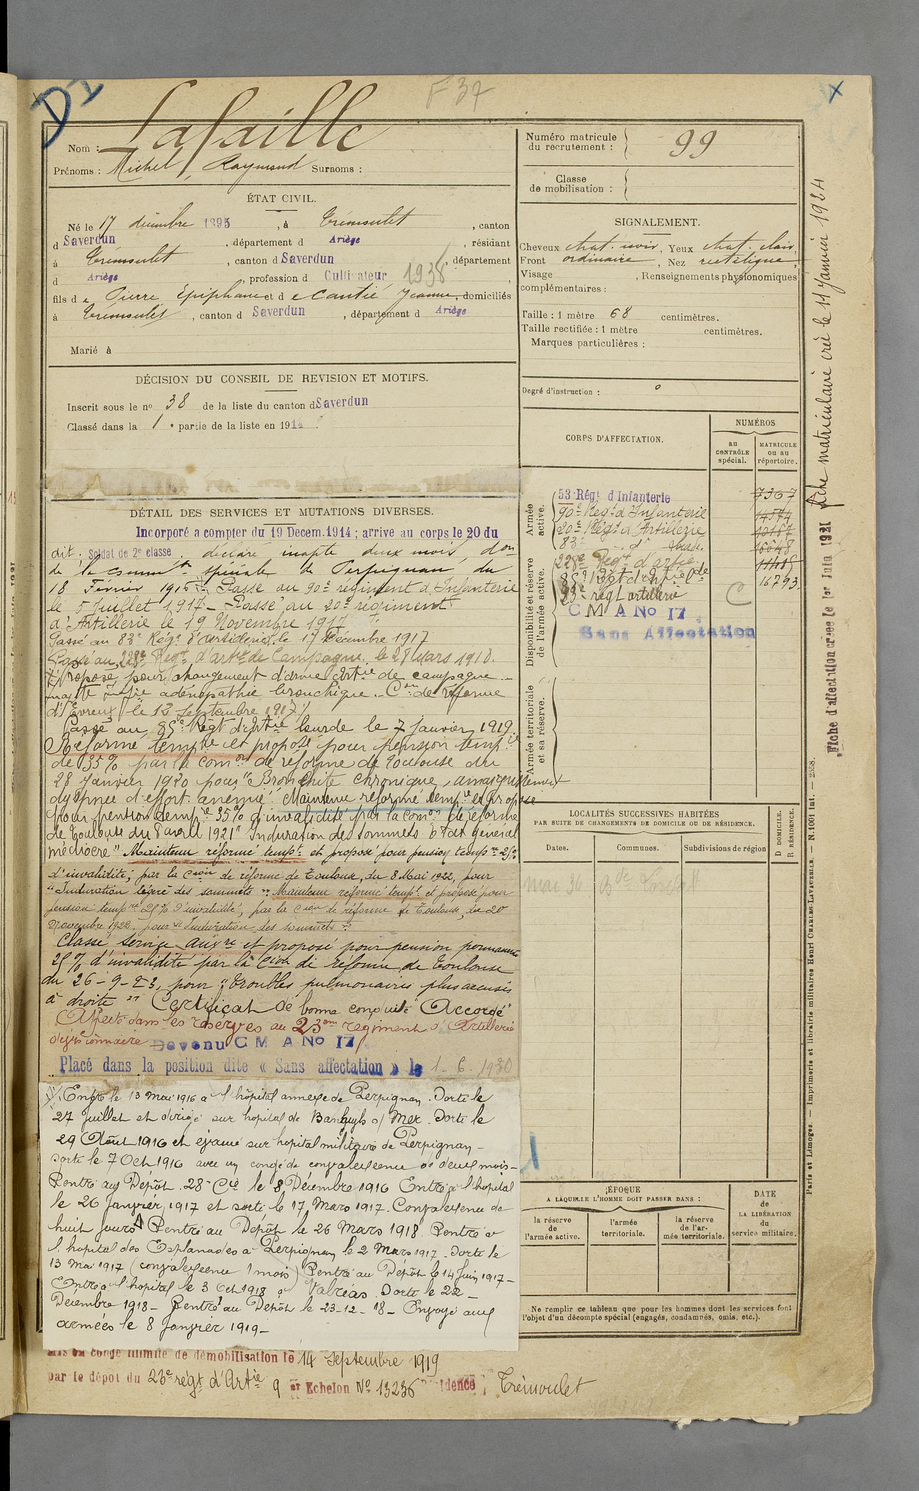 D1
F 37
x
Nom : Lafaille
Prénoms : Michel, Raymond Surnoms :
ÉTAT CIVIL.
Né le 17 décembre 1895, à Trémoulet, canton
d Saverdun, département d Ariège, résidant
à Trémoulet, canton d Saverdun, département
d Ariège, profession d Cultivateur 1938
fils d e Pierre Epiphane et d e Cantié Jeanne, domiciliés
à Trémoulet, canton d Saverdun, département d Ariège
Marié à
DÉCISION DU CONSEIL DE REVISION ET MOTIFS.
Inscrit sous le n° 38 de la liste du canton d Saverdun
Classé dans la 1e partie de la liste en 1914.
DÉTAIL DES SERVICES ET MUTATIONS DIVERSES.
Incorporé a compter du 19 Decem. 1914 ; arrive au corps le 20 du
dit. Soldat de 2e classe. déclaré inapte deux mois
de la spéciale de Perpignan du
18 Février 1916 Passé au 90e régiment d'Infanterie
le 5 Juillet 1917 - Passé au 20e régiment
d'Artillerie le 19 Novembre 1917
Passé au 83e Régt d'Artillerie le 17 Décembre 1917
Passé au 228e Régt d'Artie de Campagne le 28 Mars 1918.
Proposé pour changement d'arme Artie de campagne -
adénopathie bronchique - Con de réforme
d'Evreux le 13 Septembre 1917
Passé au 85e Régt d'Artie lourde le 7 Janvier 1919
Réformé tempre et proposé pour pension tempre
de 35% par la comon de réforme de Toulouse du
28 Janvier 1920 pour "Bronchite chronique, amaigrissement
dyspnée d'effort anémie". Maintenu réformé tempre et proposé
pour pension tempre 35% d'invalidité par la comon de réforme
de Toulouse du 8 avril 1921 "Induration des sommets, état général
médiocre" Maintenu réformé tempre et proposé pour pension tempre 25%
d'invalidité, par la Cion de réforme de Toulouse, du 8 Mai 1922, pour
"Induration légère des sommets". Maintenu réformé tempre et proposé pour
pension tempre 25% d'invalidité, par la Cion de réforme de Toulouse du 20
Novembre 1922, pour "Induration des sommets".
Classé service auxre et proposé pour pension permanente
25% d'invalidité par la Cion de réforme de Toulouse
du 26-9-23, pour : "troubles pulmonaires plus accusés
à droite" Certificat de bonne conduite Accordé
Affecté dans les réserves au 23eme régiment d'Artillerie
divisionnaire Devenu C M A No 17
Placé dans la position dite « Sans affectation » le 1-6-1930
Entré le 13 Mai 1916 à l'hôpital annexe de Perpignan. Sorti le
27 Juillet et dirigé sur hopital de Banyuls s/ Mer. Sorti le
29 Août 1916 et évacué sur hopital militaire de Perpignan -
Sorti le 7 Oct 1916 avec un congé de convalescence de deux mois -
Rentré au Dépôt 28e Cie le 8 Décembre 1916 Entré à l'hopital
le 26 Janvier 1917 et sorti le 17 Mars 1917. Convalescence de
huit jours Rentré au Dépôt le 26 Mars 1918 Rentré à
l'hopital des Esplanades à Perpignan le 2 Mars 1917. Sorti le
13 Mai 1917 (convalescence 1 mois) Rentré au Dépôt le 14 Juin 1917 -
Entré à l'hopital le 3 Oct 1918 à Valréas. Sorti le 22 -
Décembre 1918 - Rentré au Dépôt le 23-12-18 - Envoyé aux
armées le 8 Janvier 1919 -
Mis en congé illimité de démobilisation le 14 Septembre 1919
par le dépôt du 23e régt d'Artie 9 er Echelon No 13236 Trémoulet
Numéro matricule du recrutement : 99
Classe de mobilisation :
SIGNALEMENT.
Cheveux chat. noir, Yeux chat. clair
Front ordinaire, Nez rectiligne
Visage , Renseignements physionomiques
complémentaires :
Taille : 1 mètre 68 centimètres.
Taille rectifiée : 1 mètre centimètres.
Marques particulières :
Degré d'instruction : 0
CORPS D'AFFECTATION.
NUMÉROS
au CONTRÔLE spécial.
MATRICULE ou au répertoire.
Armée active.
53 Régt d'Infanterie 7367
90e Régt d'Infanterie
20e Régt d'Artillerie
83e
Disponibilité et réserve de l'armée active.
228e Régt d'artie
85e Régt d'artie lde 16293
23e régt artillerie C
C M A No 17
Sans Affectation
Armée territoriale et sa réserve.
LOCALITÉS SUCCESSIVES HABITÉES
PAR SUITE DE CHANGEMENTS DE DOMICILE OU DE RÉSIDENCE.
Dates.
Communes.
Subdivisions de région
D DOMICILE.
R RÉSIDENCE.
mai 36
ÉPOQUE
A LAQUELLE L'HOMME DOIT PASSER DANS :
la réserve de l'armée active.
l'armée territoriale.
la réserve de l'armée territoriale.
DATE de LA LIBÉRATION du service militaire.
Ne remplir ce tableau que pour les hommes dont les services font
l'objet d'un décompte spécial (engagés, condamnés, omis, etc.).
Fiche matriculaire créé le 11 Janvier 1924
Fiche d'affectation créée le 1er Juin 1921
Paris et Limoges. — Imprimerie et librairie militaires Henri CHARLES-LAVAUZELLE. — N. 1001 Int. — 258.